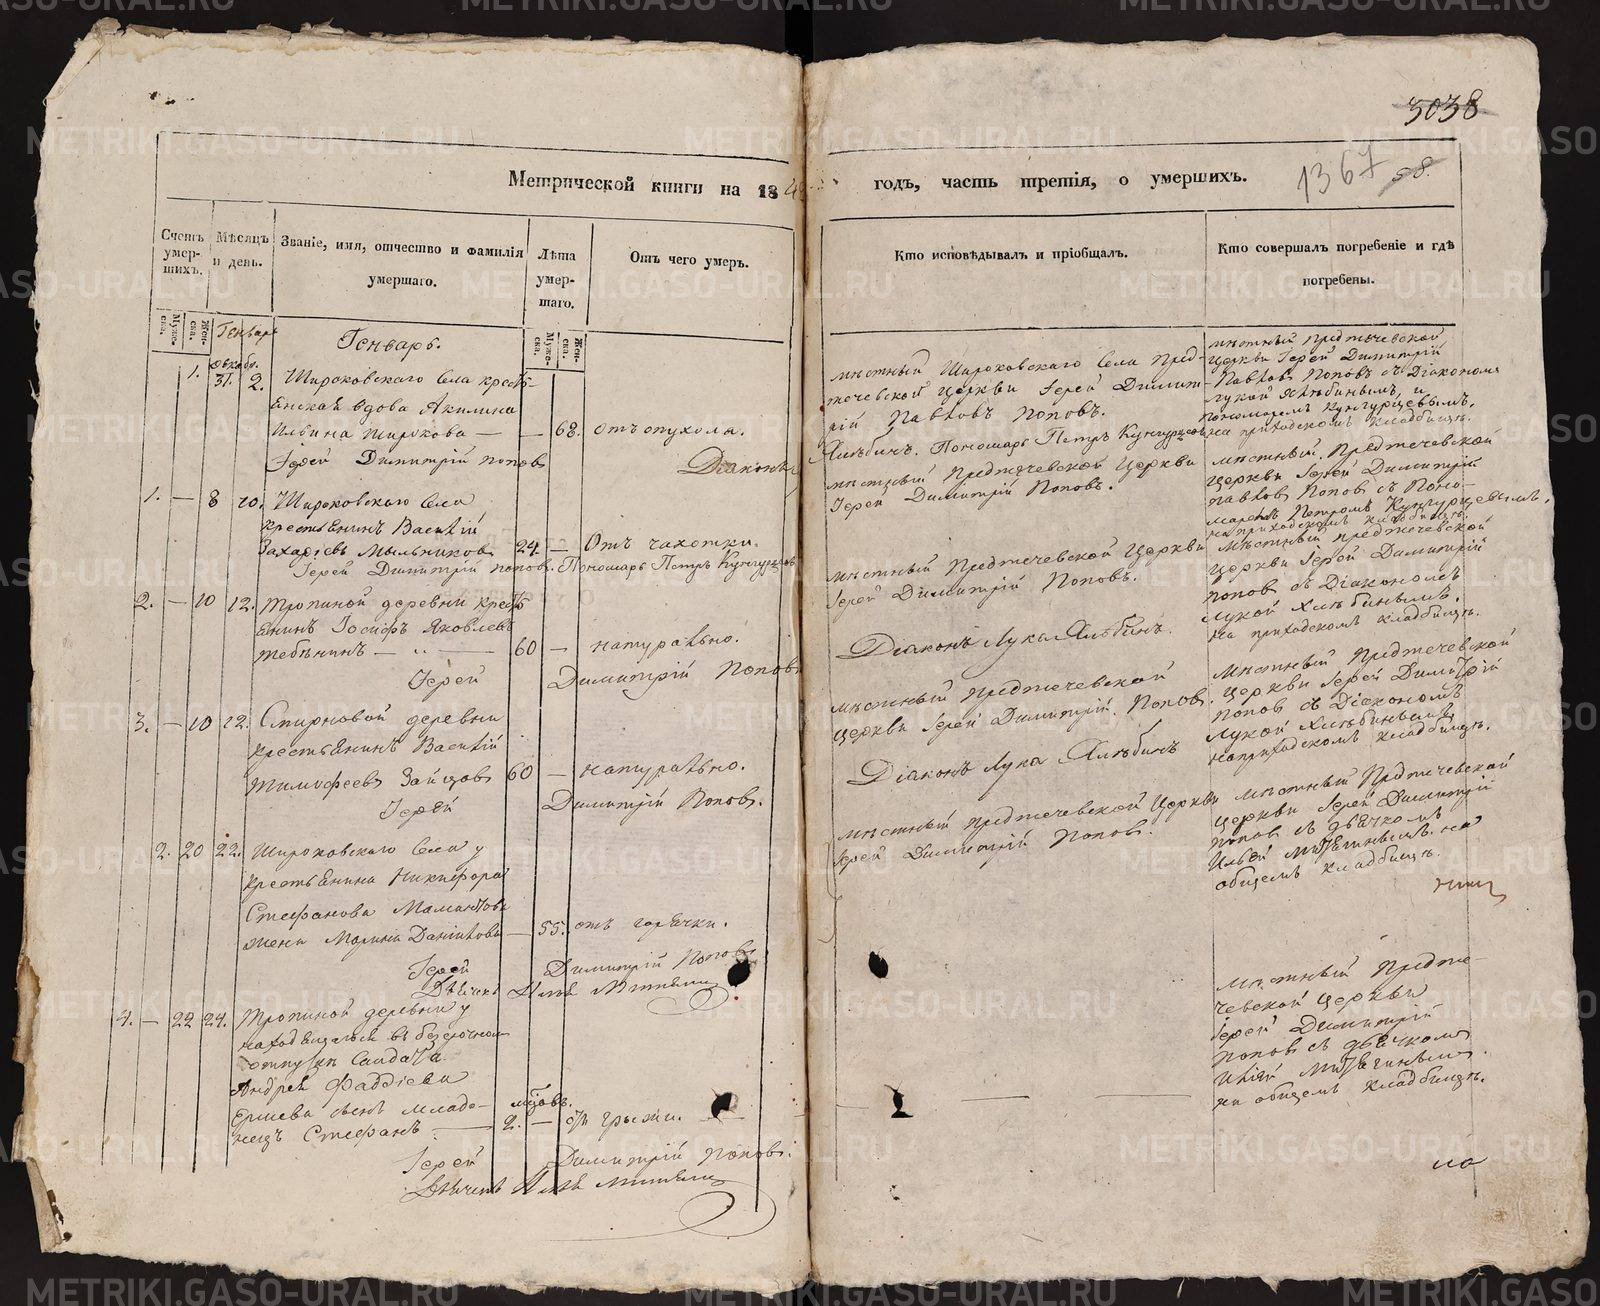 3038
1367
58.
Метрической книги на 184 годъ, часть третія, о умершихъ.
Счетъ умер-
шихъ.
Муже-
ска.
Жен-
ска.
Мѣсяцъ
и день.
Званіе, имя, отчество и фамилія
умершаго.
Лѣта
умер-
шаго.
Муже-
ска.
Жен-
ска.
Отъ чего умеръ.
Кто исповѣдывалъ и пріобщалъ.
Кто совершалъ погребеніе и гдѣ
погребены.
Генварь.
1. 31. 2. Широковскаго села кресть-
янская вдова Акилина
Ильина Широкова — — 68. отъ опухола.
Іерей Димитрій Попов Діаконъ
мѣстный Широковскаго Села Пред-
течевской Церкви Іерей Димит-
рій Павловъ Поповъ.
Хлѣбинъ. Пономарь Петръ Кунгурцовъ
мѣстный Предтечевской
Церкви Іерей Димитрій
Павловъ Поповъ съ Діакономъ
Лукой Хлѣбинымъ, и
пономаремъ Кунгурцевымъ,
на приходскомъ кладбищѣ.
1. — 8 10. Широковскаго Села
крестьянинъ Василій
Захаровъ Мыльниковъ 24. — Отъ чахотки.
Іерей Димитрій Поповъ. Пономарь Петръ Кунгурцовъ
мѣстный Предтечевской Церкви
Іерей Димитрій Поповъ.
мѣстный Предтечевской
Церкви Іерей Димитрій
Павловъ Поповъ съ Поно-
маремъ Петромъ Кунгурцевымъ,
на приходскомъ кладбищѣ.
2. — 10 12. Тропиной деревни кресть
янинъ Іосифъ Яковлевъ
60 — натурально.
Іерей Димитрій Поповъ
мѣстный Предтечевской Церкви
Іерей Димитрій Поповъ.
Діаконъ Лука Хлѣбинъ.
Мѣстный предтечевской
Церкви Іерей Димитрій
Поповъ съ Діакономъ
Лукой Хлѣбинымъ.
На приходскомъ кладбищѣ.
3. — 10 12. Смирновой деревни
крестьянинъ Василій
Тимофеевъ Зайцовъ 60 — натурально.
Іерей Димитрій Поповъ.
мѣстный предтечевской
Церкви Іерей Димитрій Поповъ.
Діаконъ Лука Хлѣбинъ
мѣстный Предтечевской
Церкви Іерей Димитрій
Поповъ съ Діакономъ
Лукой Хлѣбинымъ,
на приходскомъ кладбищѣ.
2. 20 22. Широковскаго Села у
крестьянина Никифора
Стефанова
жена Марина Данилова — 55. отъ горячки.
Іерей Димитрій Поповъ
Дьячекъ Илья
мѣстный предтечевской Церкви
Іерей Димитрій Поповъ.
мѣстный Предтечевской
Церкви Іерей Димитрій
Поповъ съ дьячкомъ
Ильей на
общемъ кладбищѣ.
4. — 22 24. Тропиной деревни у
находящагося въ безсрочномъ
отпуску Солдата
Андрея Фаддіева
сынъ младе-
нецъ Стефанъ — 2. — отъ грыжи.
Іерей Димитрій Поповъ.
Дьячекъ Илья
мѣстный Предте-
чевской Церкви
Іерей Димитрій
Поповъ съ дьячкомъ
Ильей
на общемъ кладбищѣ.
на
METRIKI.GASO-URAL.RU